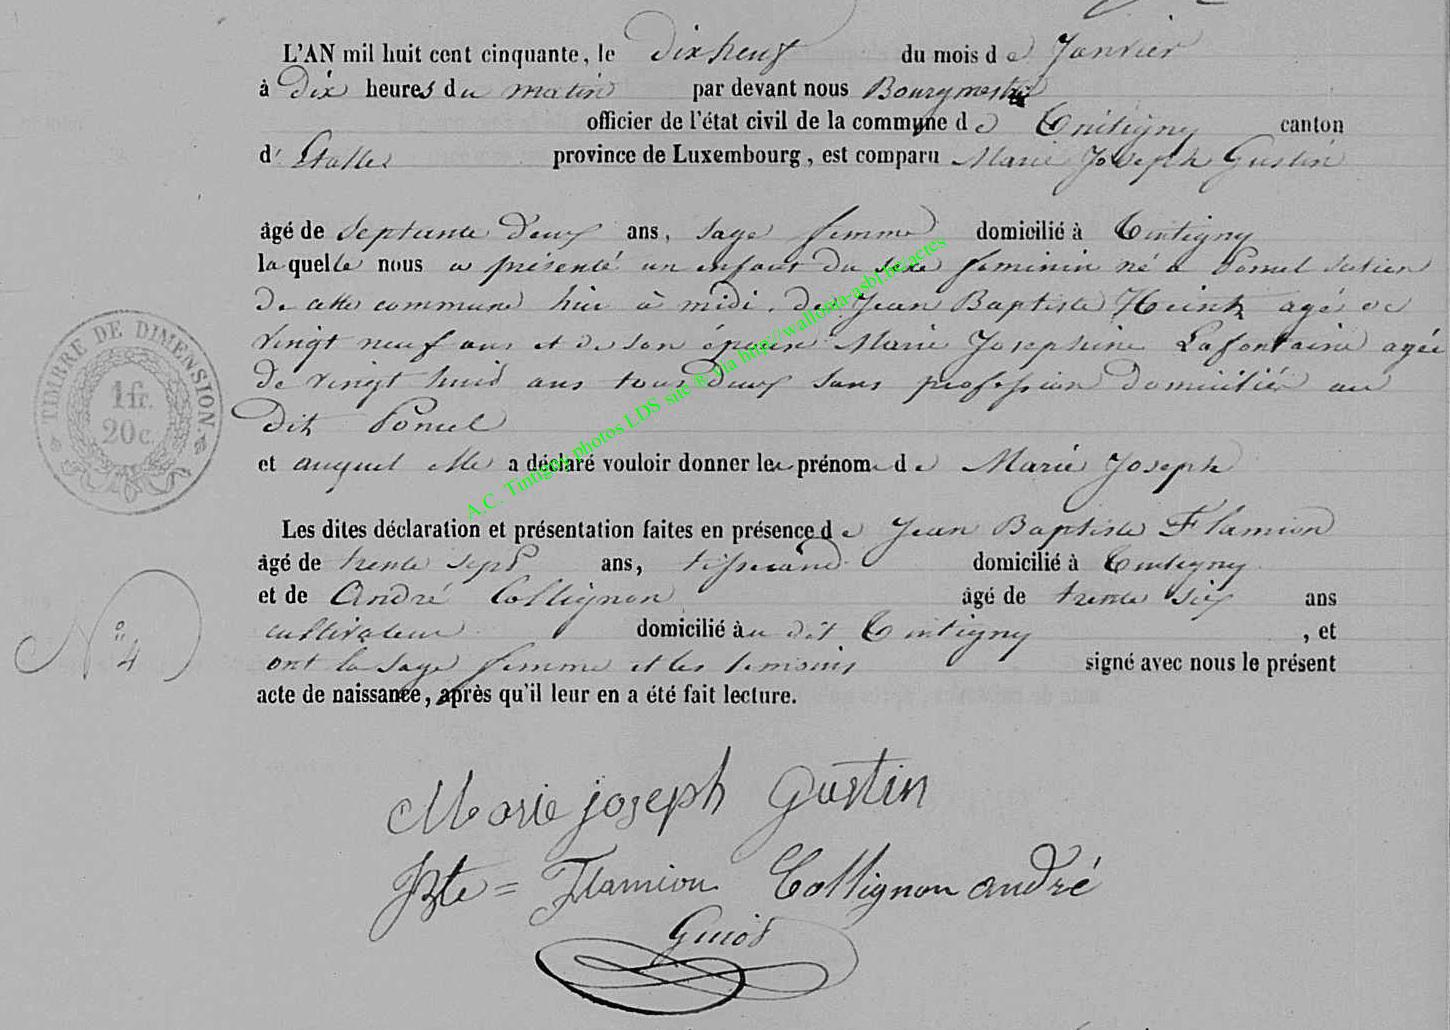 L'AN mil huit cent cinquante, le dix neuf du mois de Janvier
à Dix heures du matin par devant nous Bourgmestre
officier de l'état civil de la commune de Tintigny canton
d'Etalle province de Luxembourg, est comparu Marie Joseph Gustin
âgé de septante deux ans, sage femme domicilié à Tintigny
laquelle nous a présenté un enfant du sexe feminin né à Poncel section
de cette commune hier à midi de Jean Baptiste Heintz agé de
vingt neuf ans et de son épouse Marie Josephine Lafontaine agée
de vingt huit ans tous deux sans profession domiciliés au
dit Poncel
et auquel elle a déclaré vouloir donner les prénom de Marie Joseph
Les dites déclaration et présentation faites en présence de Jean Baptiste Flamion
âgé de trente sept ans, tisserand domicilié à Tintigny
et de André Collignon âgé de trente six ans
cultivateur domicilié au dit Tintigny , et
ont la sage femme et les temoins signé avec nous le présent
acte de naissance, après qu'il leur en a été fait lecture.
TIMBRE DE DIMENSION
1 fr.
20 c.
N° 4
Marie joseph Gustin
JBte = Flamion Collignon andré
Guiot
A.C. Tintigny photos LDS site ® via http://wallonia-asbl.be/actes